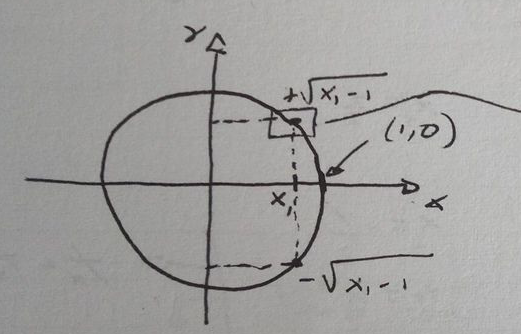 y
+√x₁-1
(1,0)
x₁
x
-√x₁-1